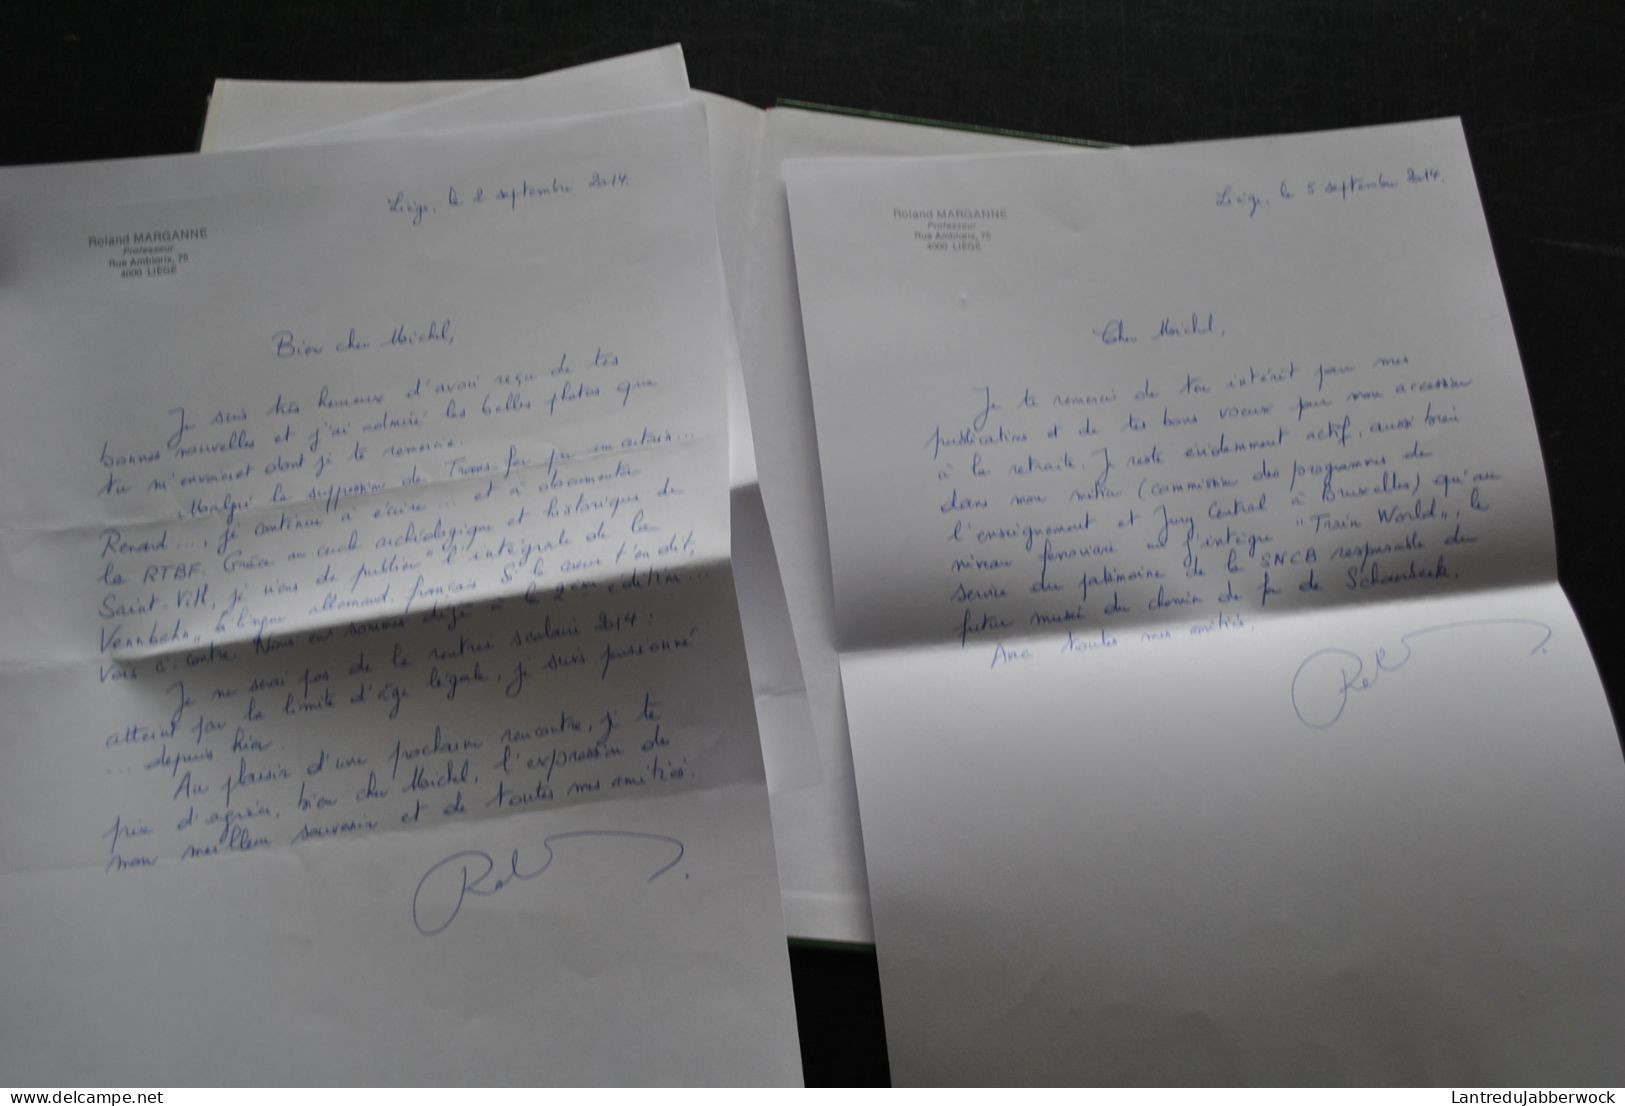 Liège, le 2 septembre 2014.
Roland MARGANNE
Professeur
Rue Ambiorix, 75
4000 LIEGE
Bien cher Michel,
Je suis très heureux d'avoir reçu de tes
bonnes nouvelles et j'ai admiré les belles photos que
tu m'envoies et dont je te remercie.
Malgré la suppression de Trans-fer par un certain...
Renard..., je continue à écrire... et à documenter
la RTBF. Grâce au cercle archéologique et historique de
Saint-Vith, je viens de publier "l'intégrale de la
Vennbahn" bilingue allemand-français. Si le cœur t'en dit,
vois ci-contre. Nous en sommes déjà à la 2ème édition...
Je ne serai pas de la rentrée scolaire 2014 :
atteint par la limite d'âge légale, je suis pensionné
... depuis hier.
Au plaisir d'une prochaine rencontre, je te
prie d'agréer, bien cher Michel, l'expression de
mon meilleur souvenir et de toutes mes amitiés.
Liège, le 5 septembre 2014.
Roland MARGANNE
Professeur
Rue Ambiorix, 75
4000 LIEGE
Cher Michel,
Je te remercie de ton intérêt pour mes
publications et de tes bons vœux pour mon accession
à la retraite. Je reste évidemment actif, aussi bien
dans mon métier (commission des programmes de
l'enseignement et Jury Central à Bruxelles) qu'au
niveau ferroviaire où j'intègre "Train World", le
service du patrimoine de la SNCB responsable du
futur musée du chemin de fer de Schaerbeek.
Avec toutes mes amitiés.
LantreduJabberwock